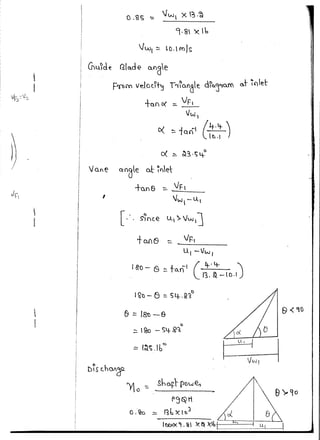 0.85 = Vw₁ × 13.2
9.81 × 16
Vw₁ = 10.1 m/s
Guide Blade angle
From velocity Triangle diagram at inlet
tan α = VF₁
Vw₁
α = tan⁻¹ (4.4
10.1)
α = 23.54°
Vane angle at inlet
tan θ = VF₁
Vw₁ - u₁
[∵ since u₁ > Vw₁]
tan θ = VF₁
u₁ - Vw₁
180 - θ = tan⁻¹ (4.4
13.2 - 10.1)
180 - θ = 54.83°
θ = 180 - θ
= 180 - 54.83°
= 125.16°
α θ
u₁
Vw₁
θ < 90
Discharge
η₀ = Shaft power
ρgQH
0.80 = 
1000 × 9.81 × Q ×
α θ
u₁
θ > 90